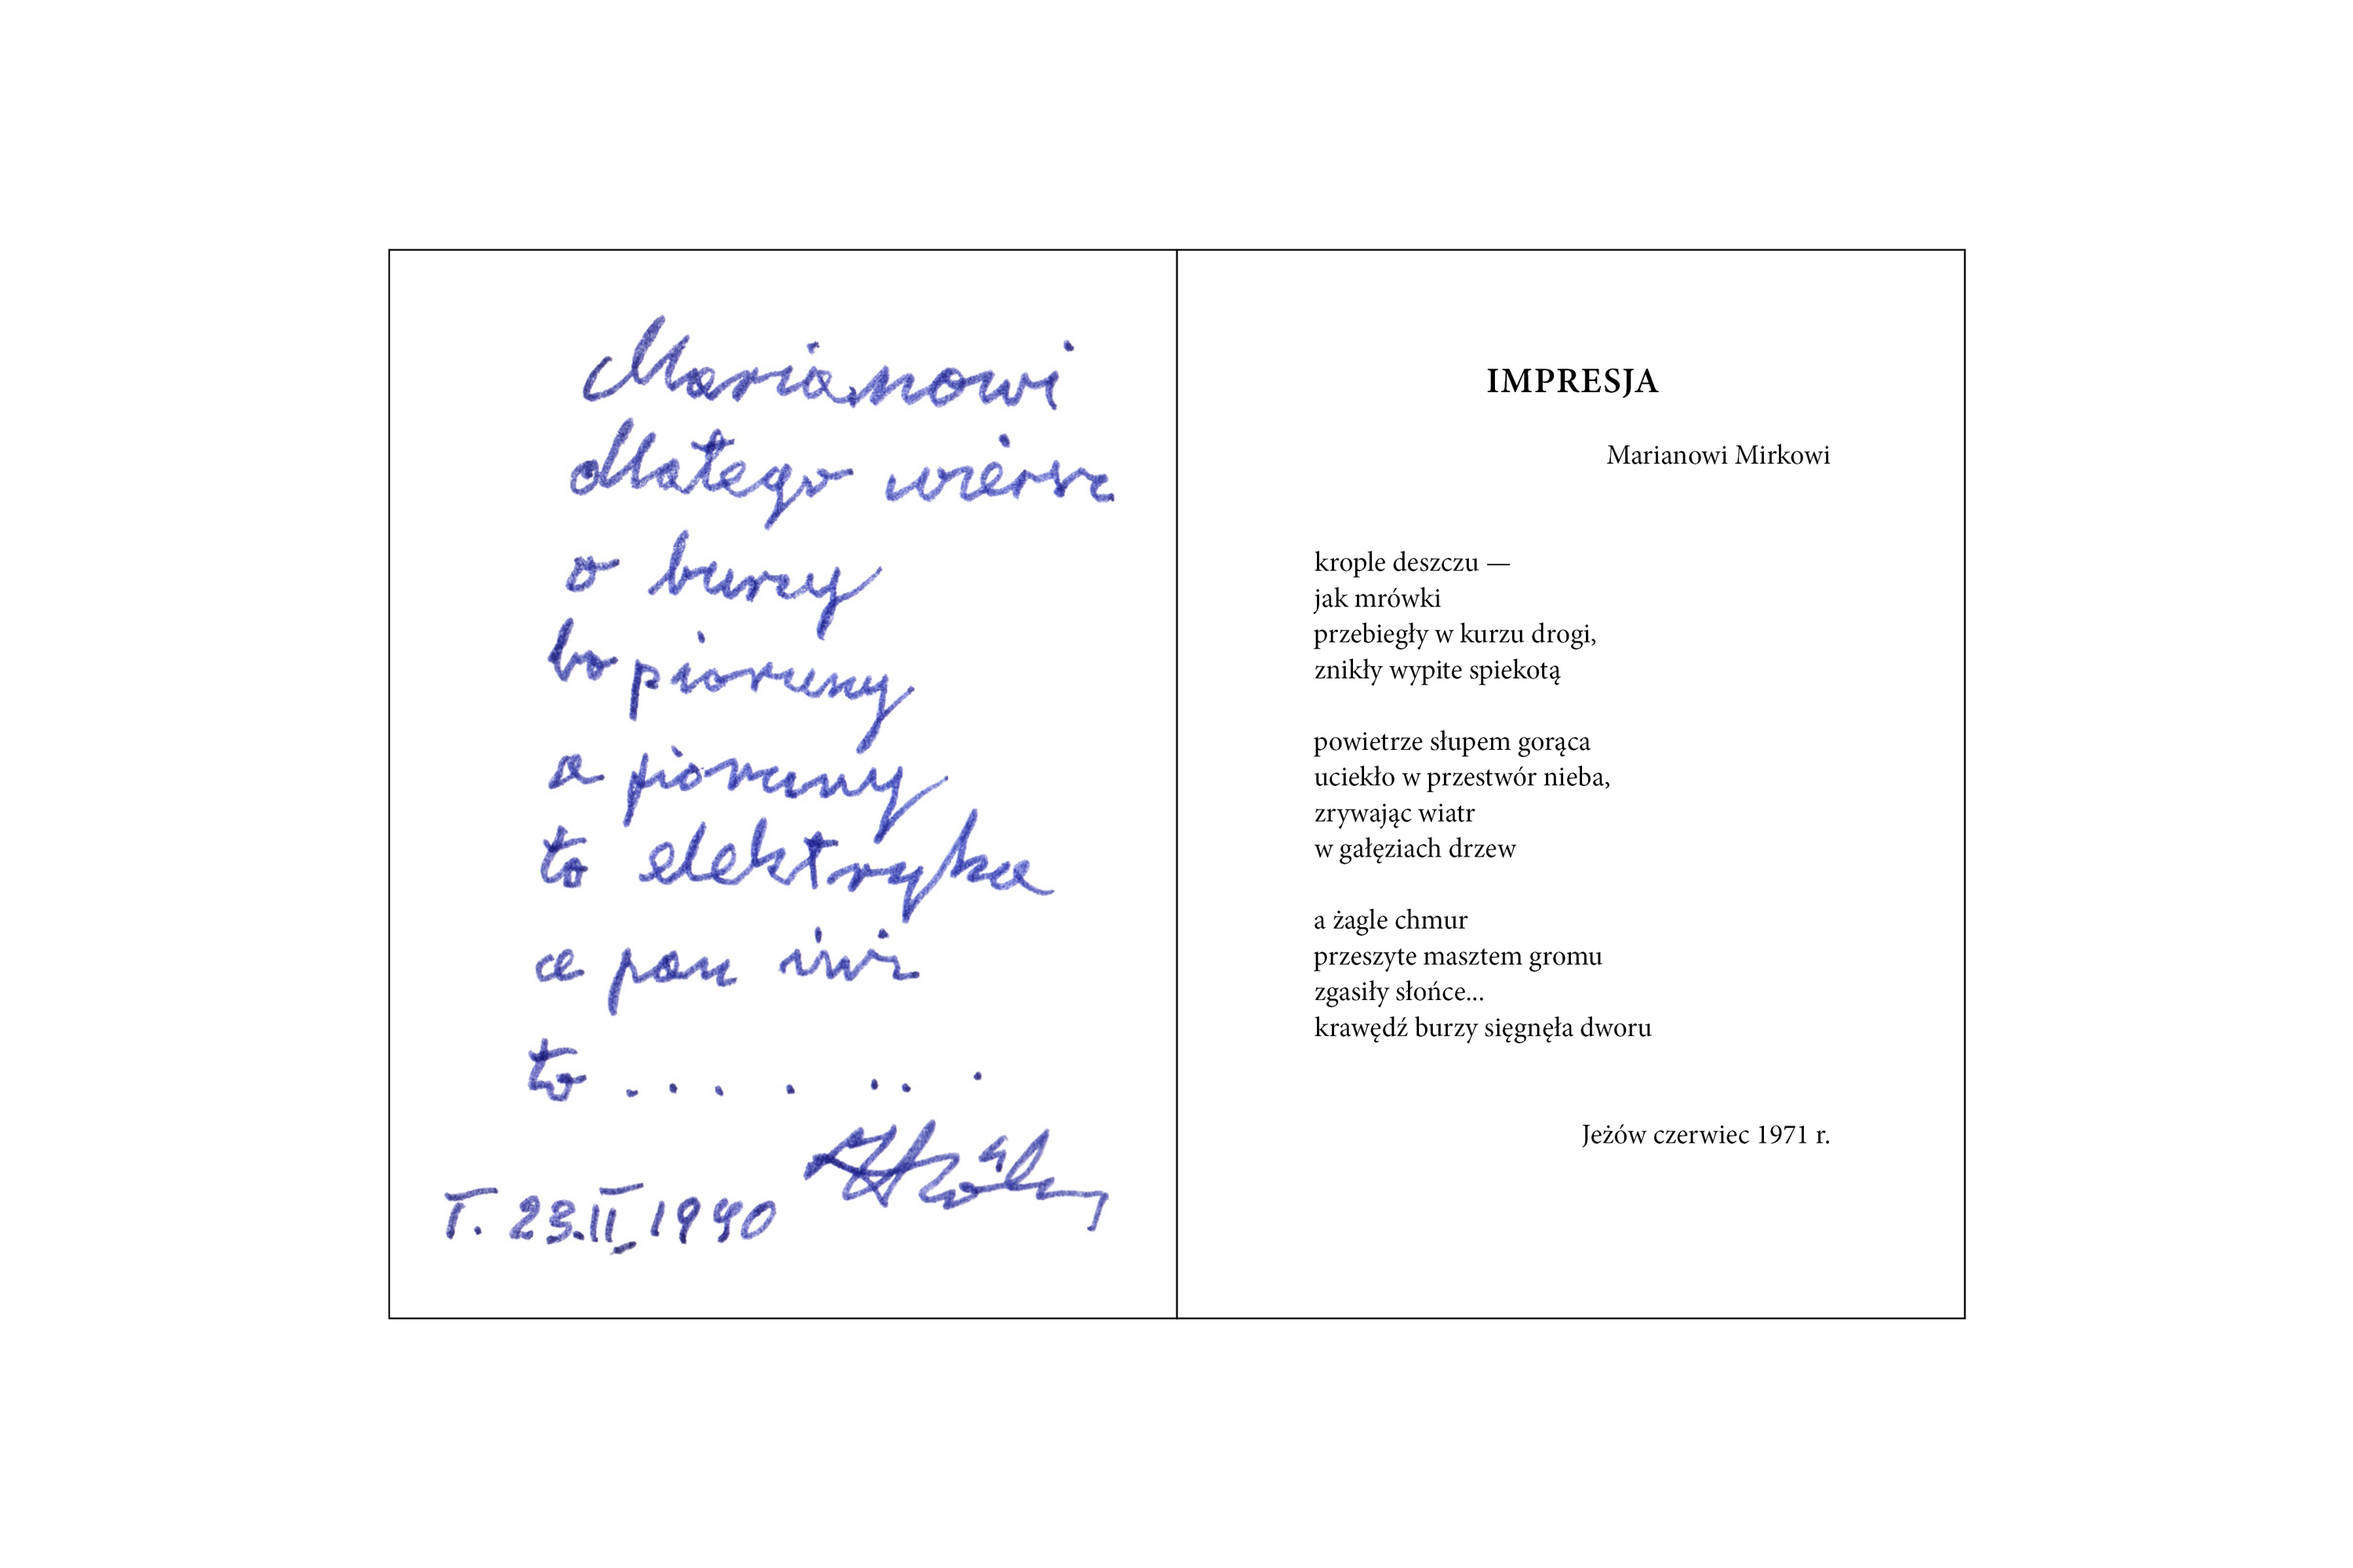 Marianowi
dlatego wiersz
o burzy
bo pioruny
a pioruny
to elektryka
a pan inż
to . . . . . . .
T. 23.II.1990
IMPRESJA
Marianowi Mirkowi
krople deszczu —
jak mrówki
przebiegły w kurzu drogi,
znikły wypite spiekotą
powietrze słupem gorąca
uciekło w przestwór nieba,
zrywając wiatr
w gałęziach drzew
a żagle chmur
przeszyte masztem gromu
zgasiły słońce...
krawędź burzy sięgnęła dworu
Jeżów czerwiec 1971 r.